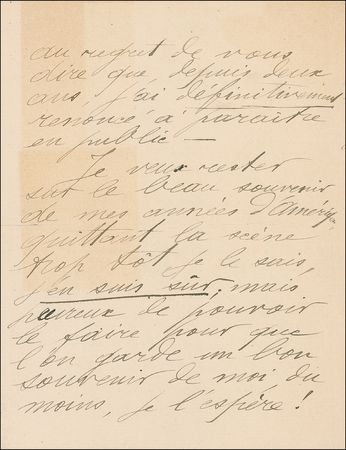 au regret de vous
dire que, depuis deux
ans, j'ai définitivement
renoncé à paraître
en public —
Je veux rester
sur le beau souvenir
de mes années d'Amérique
quittant la scène
trop tôt je le sais,
j'en suis sûr, mais
heureux de pouvoir
le faire pour que
l'on garde un bon
souvenir de moi du
moins, je l'espère!